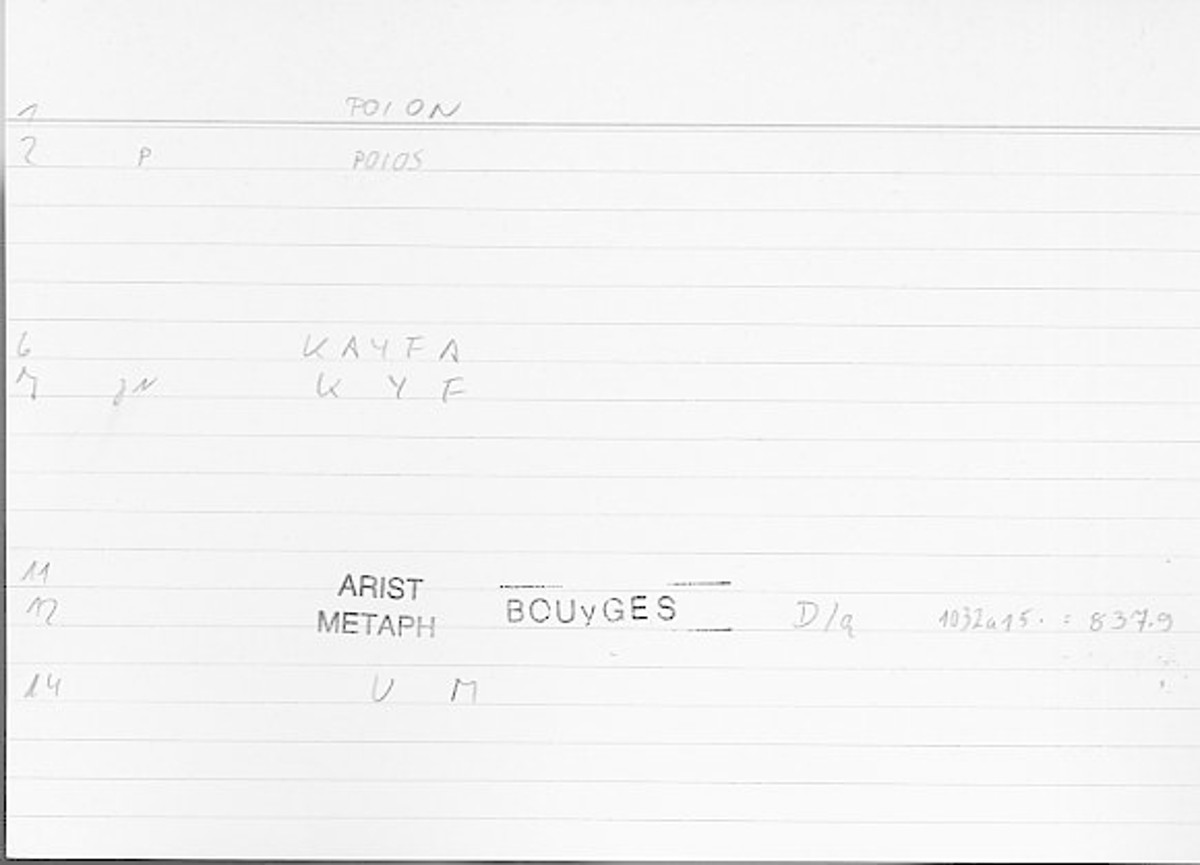 1 POION
2 P POIOS
6 KAYFA
7 JN K Y F
11 ARIST
12 METAPH BOUyGES D/a 1032a15. : 837.9
14 U M